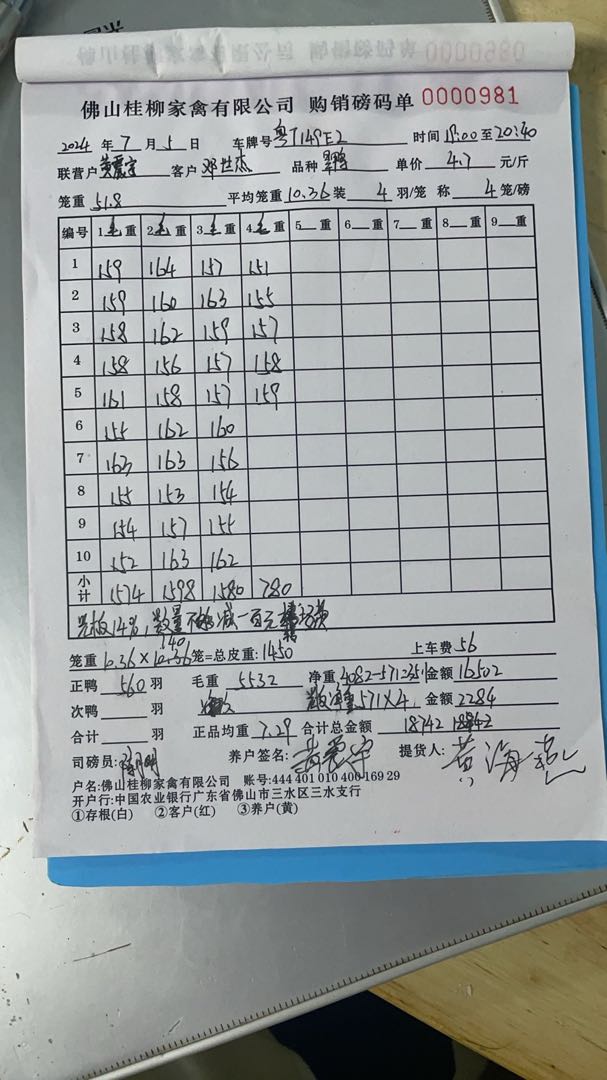 佛山桂柳家禽有限公司 购销磅码单 0000981
2024 年 7 月 5 日 车牌号 粤T149E2 时间 18:00 至 20:40
联营户 黄震宇 客户 邓世杰 品种 单价 4.7 元/斤
笼重 51.8 平均笼重 10.36 装 4 羽/笼 称 4 笼/磅
编号 1 毛 重 2 毛 重 3 毛 重 4 毛 重 5 重 6 重 7 重 8 重 9 重
1 159 164 157 151
2 159 160 163 155
3 158 162 159 157
4 158 156 157 158
5 161 158 157 159
6 155 162 160
7 163 163 156
8 155 153 154
9 154 157 155
10 152 163 162
小计 1574 1598 1580 780
光板14%,数量不够减一百元
140
笼重 10.36 × 笼=总皮重: 1450
上车费 56
正鸭 560 羽 毛重 5532 净重 4082-571=3511 金额 16502
次鸭 羽 571×4 金额 2284
合计 羽 正品均重 7.29 合计总金额 18742 18842
司磅员: 养户签名: 黄震宇 提货人: 黄海
户名:佛山桂柳家禽有限公司 账号:444 401 010 400 169 29
开户行:中国农业银行广东省佛山市三水区三水支行
①存根(白) ②客户(红) ③养户(黄)